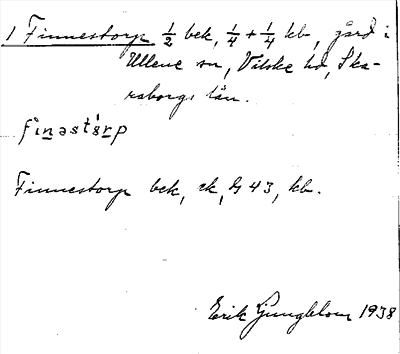 1 Finnestorp ½ bek, ¼ + ¼ kb, gård i
Ullene sn, Vilske hd, Ska-
raborgs län.
finəstôrp
Finnestorp bek, ek, G 43, kb.
Erik Ljungblom 1938